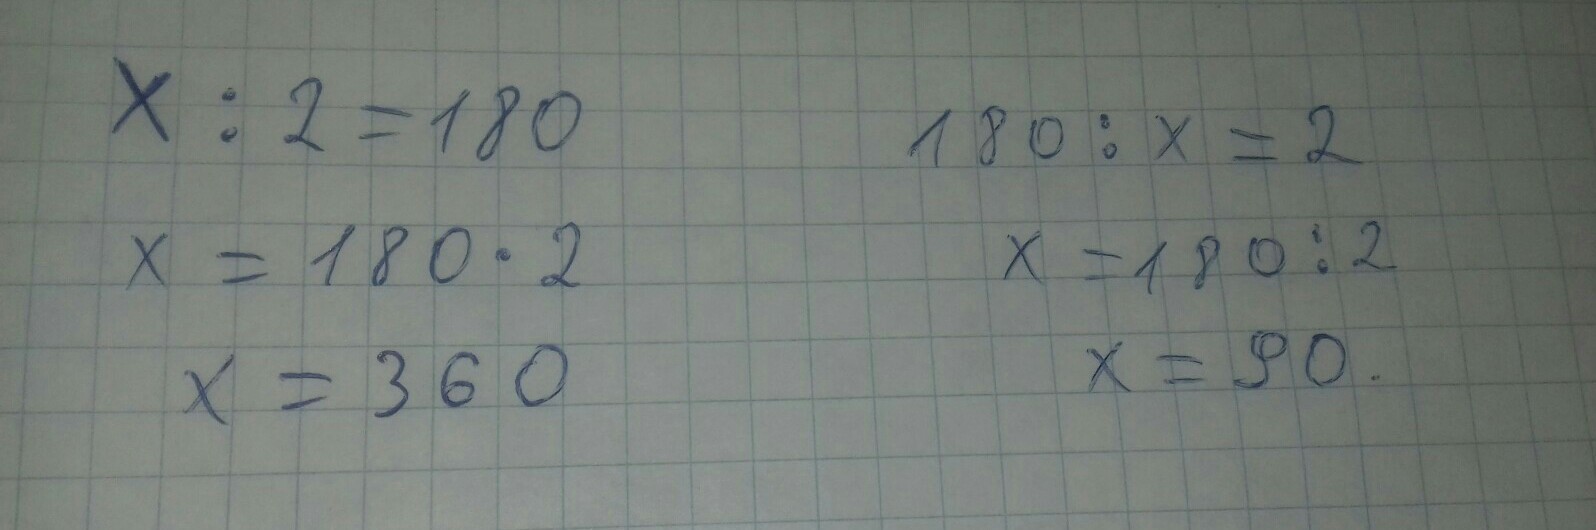 x : 2 = 180
x = 180 · 2
x = 360
180 : x = 2
x = 180 : 2
x = 90.